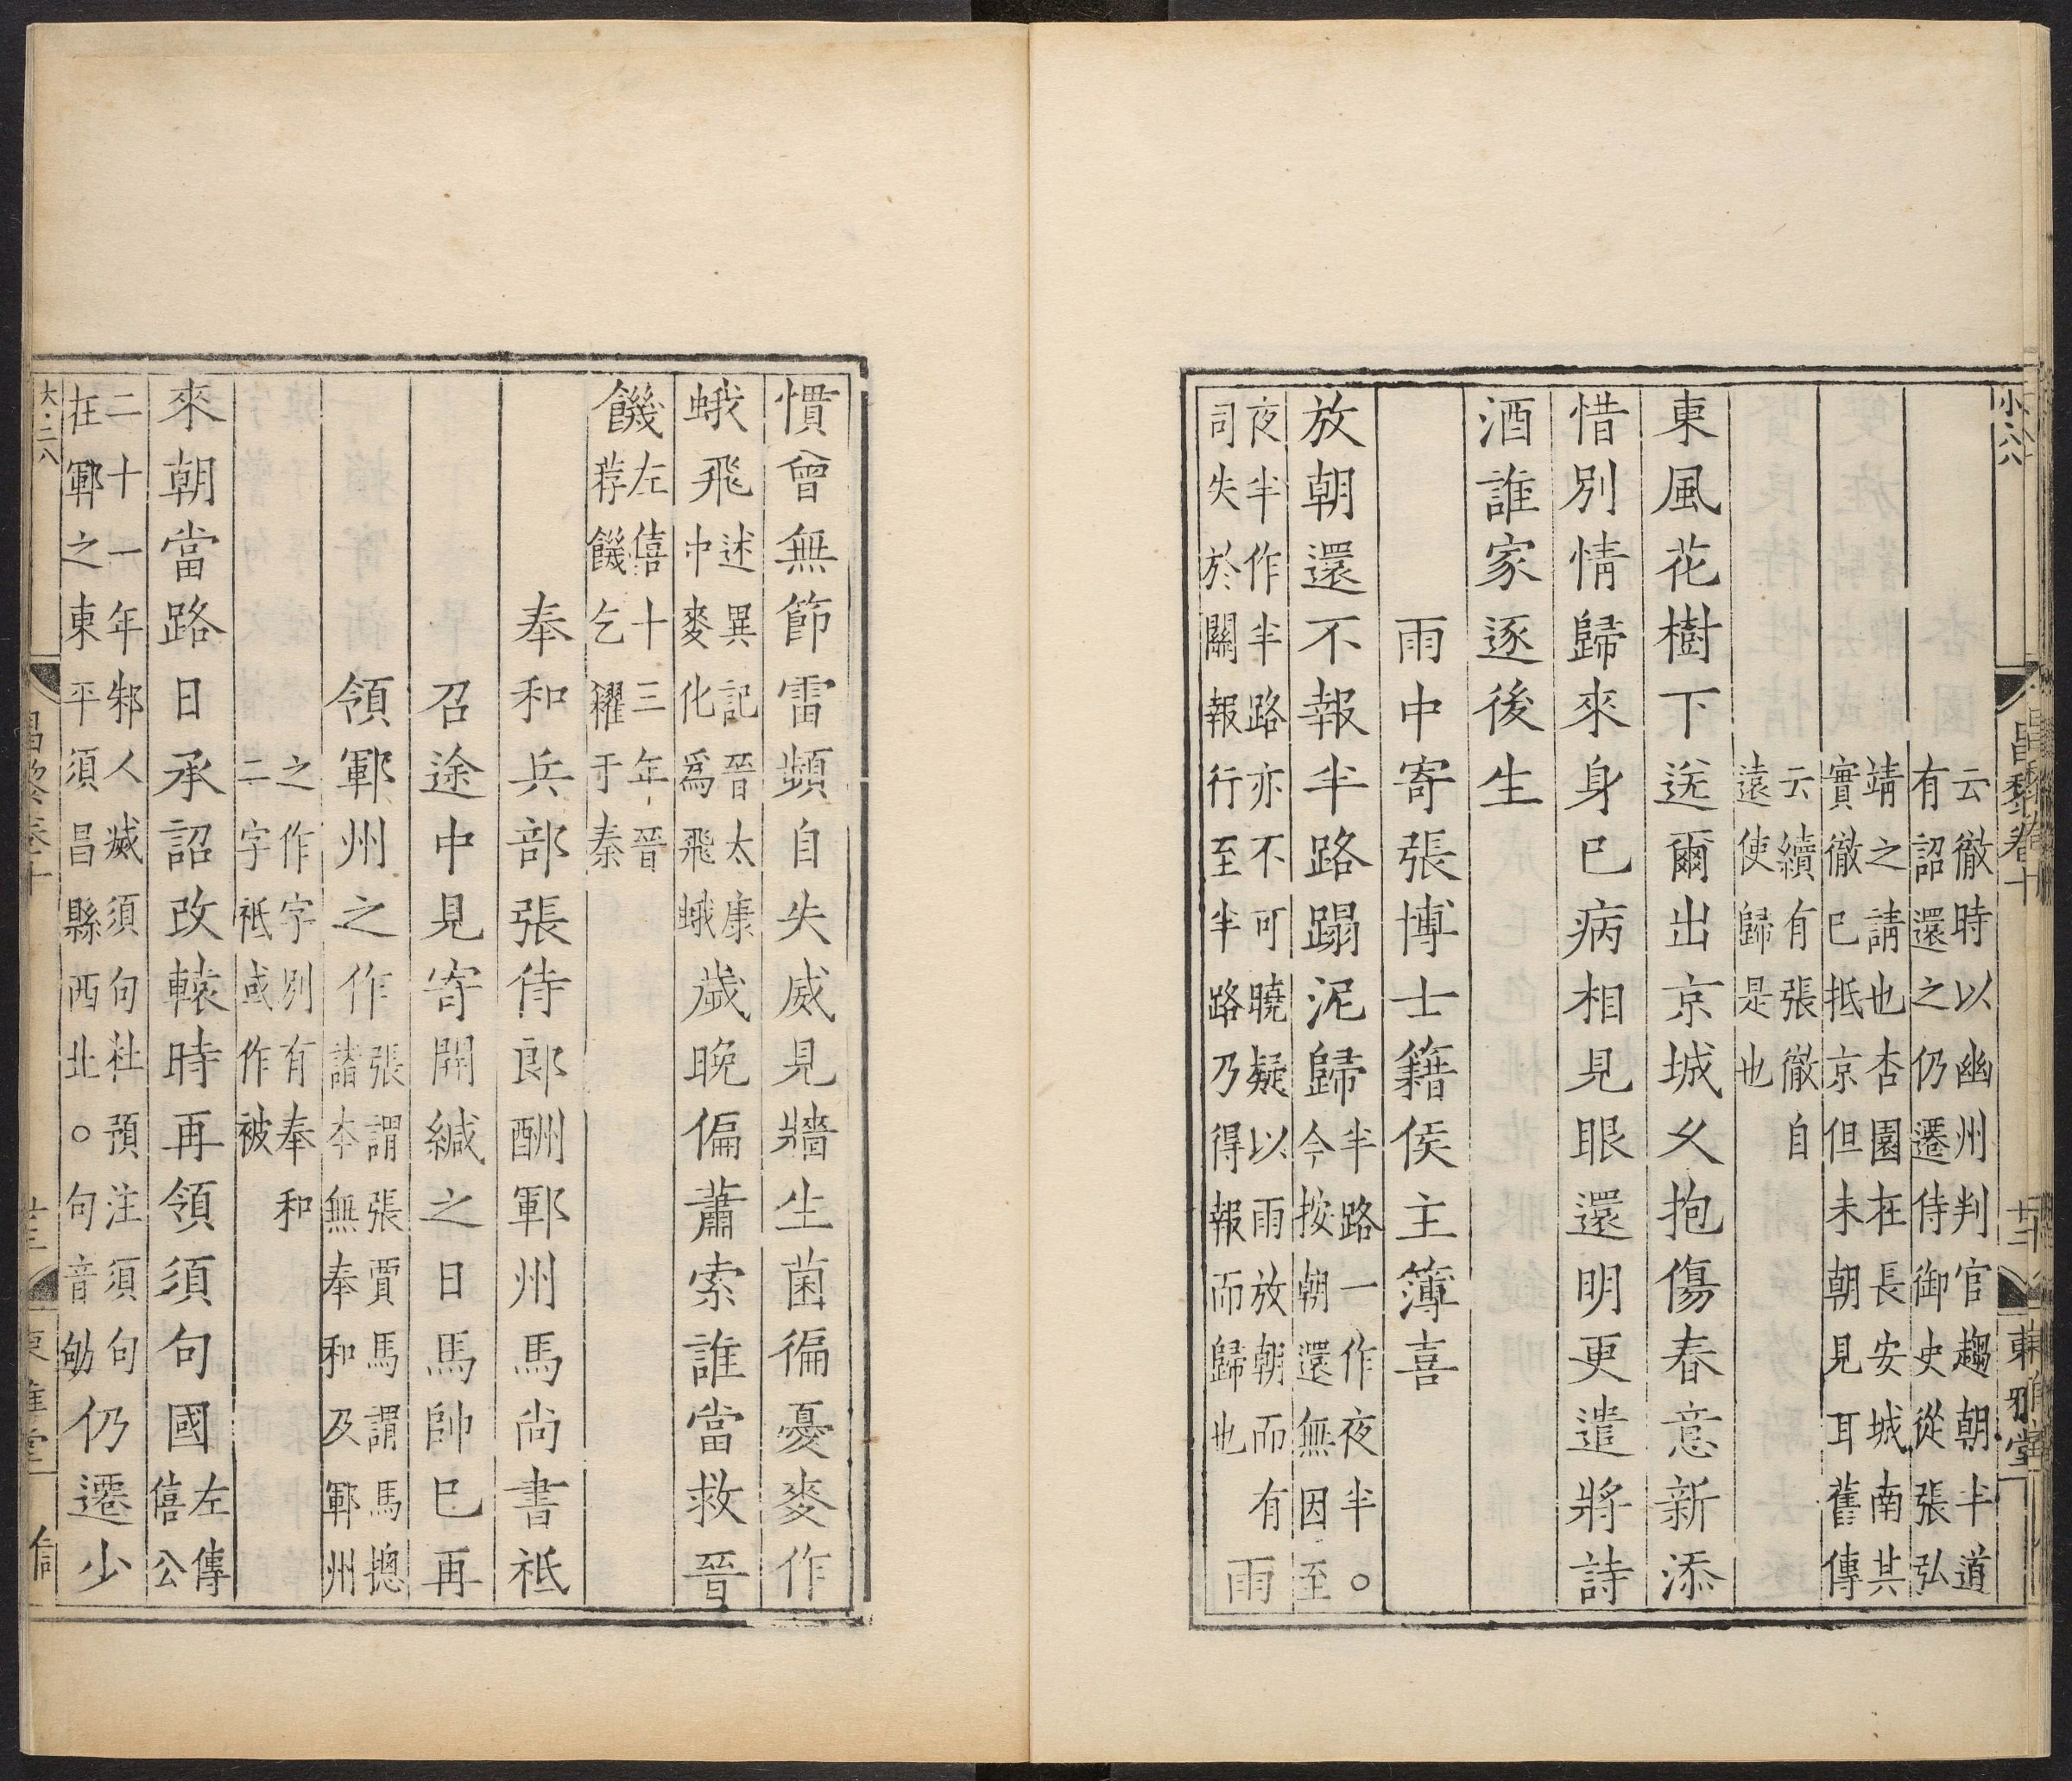 小六八
昌黎卷十
廿二
東雅堂
云徹時以幽州判官趨朝半道
有詔還之仍遷侍御史從張弘
靖之請也杏園在長安城南其
實徹巳抵京但未朝見耳舊傳
云續有張徹自
遠使歸是也
東風花樹下送爾出京城久抱傷春意新添
惜別情歸來身巳病相見眼還明更遣將詩
酒誰家逐後生
雨中寄張博士籍侯主簿喜
放朝還不報半路蹋泥歸
半路一作夜半。
今按朝還無因至
夜半作半路亦不可曉疑以雨放朝而有
司失於關報行至半路乃得報而歸也
雨
慣曾無節雷頻自失威見牆生菌徧憂麥作
蛾飛
述異記晉太康
中麥化爲飛蛾
歲晚偏蕭索誰當救晉
饑
左僖十三年晉
荐饑乞糴于秦
奉和兵部張侍郎酬鄆州馬尚書祗
召途中見寄開緘之日馬帥巳再
領鄆州之作
張謂張賈馬謂馬摠
諸本無奉和及鄆州
之作字別有奉和
二字祗或作被
來朝當路日承詔改轅時再領須句國
左傳
僖公
二十一年邾人滅須句杜預注須句
在鄆之東平須昌縣西北。句音劬
仍遷少
大二八
昌黎卷十
廿三
東雅堂